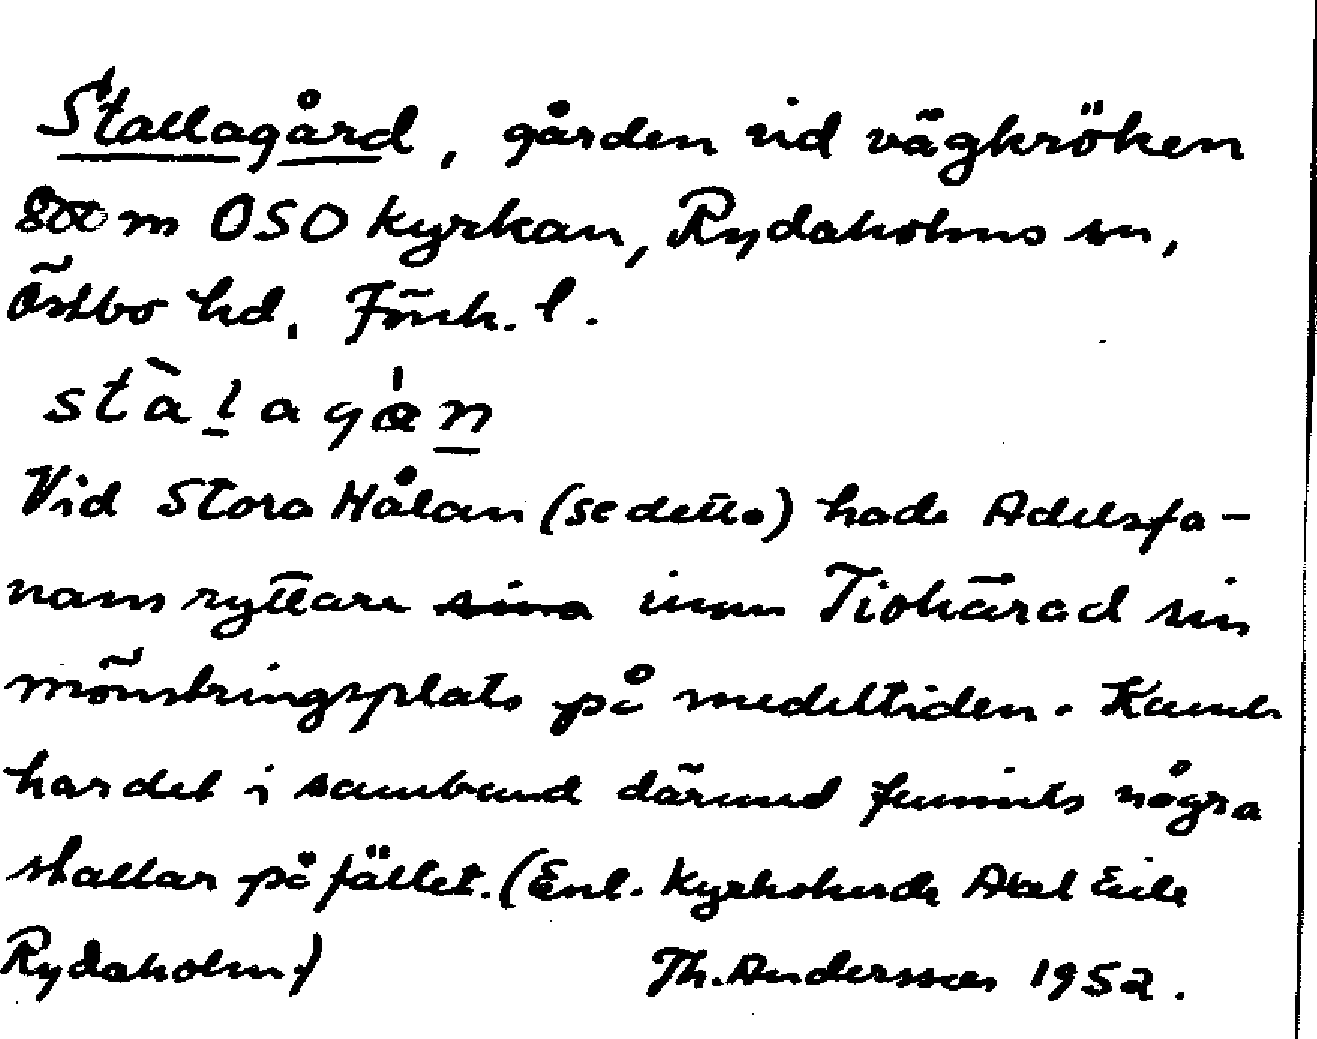 Stallagård, gården vid vägkröken
800 m OSO kyrkan, Rydaholms sn,
Östbo hd. Jönk. l.
stàlagán
Vid Stora Hålan (se detta) hade Adelsfa-
nans ryttare sina inom Tiohärad sin
mönstringsplats på medeltiden. Kanske
har det i samband därmed funnits några
stallar på fället. (Enl. kyrkoherde Axel
Rydaholm)
Th. Andersson 1952.